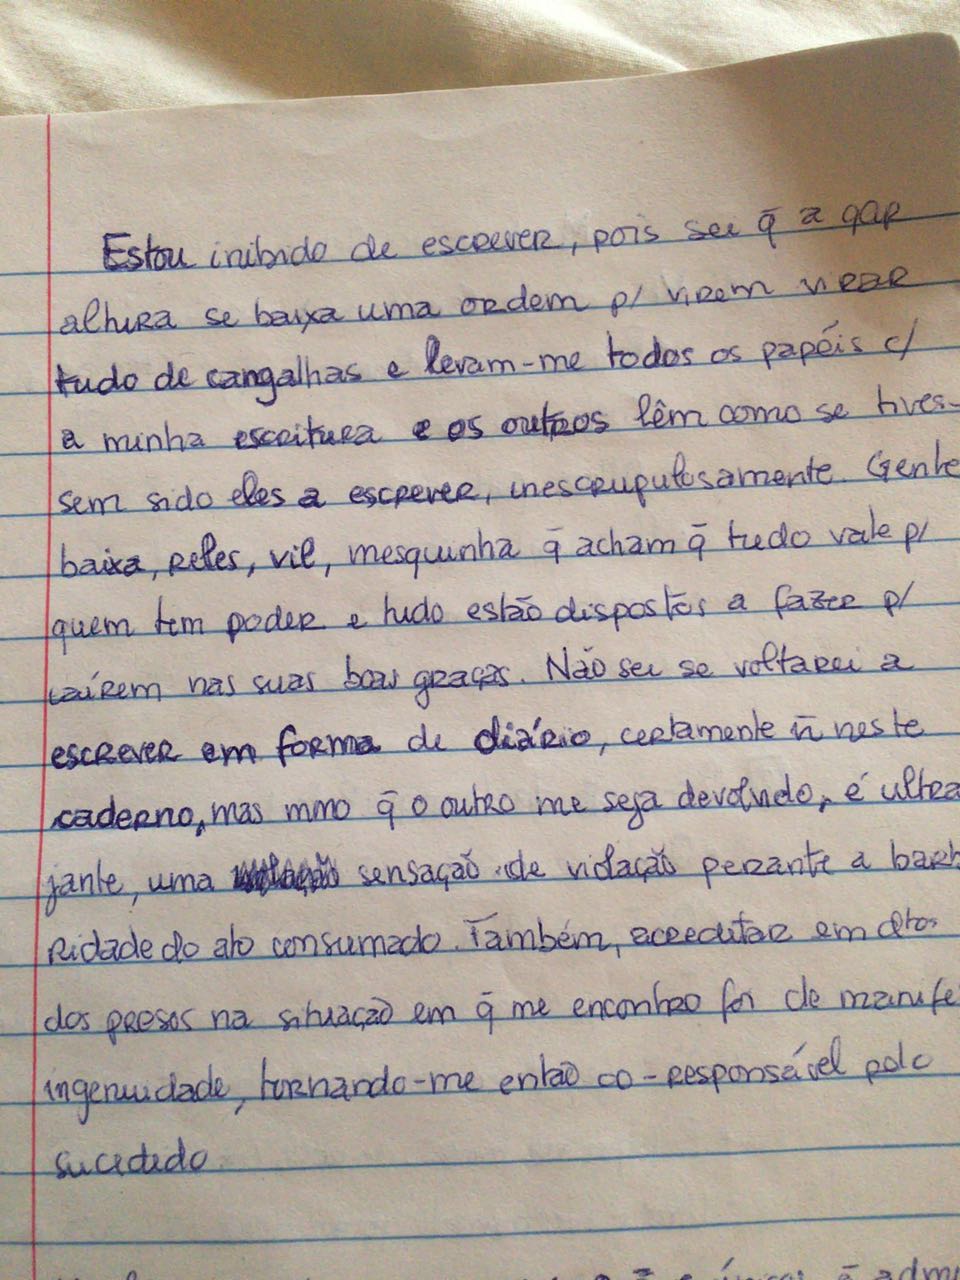 Estou inibido de escrever, pois sei q̄ a qqr
altura se baixa uma ordem p/ virem virar
tudo de cangalhas e levam-me todos os papéis c/
a minha escritura e os outros lêm como se tives-
sem sido eles a escrever, inescrupulosamente. Gente
baixa, reles, vil, mesquinha q̄ acham q̄ tudo vale p/
quem tem poder e tudo estão dispostos a fazer p/
caírem nas suas boas graças. Não sei se voltarei a
escrever em forma de diário, certamente ñ neste
caderno, mas mmo q̄ o outro me seja devolvido, é ultra
jante, uma sensação de violação perante a barb
ridade do ato consumado. Também, acreditar em dtos
dos presos na situação em q̄ me encontro foi de manife
ingenuidade, tornando-me então co-responsável pelo
sucedido